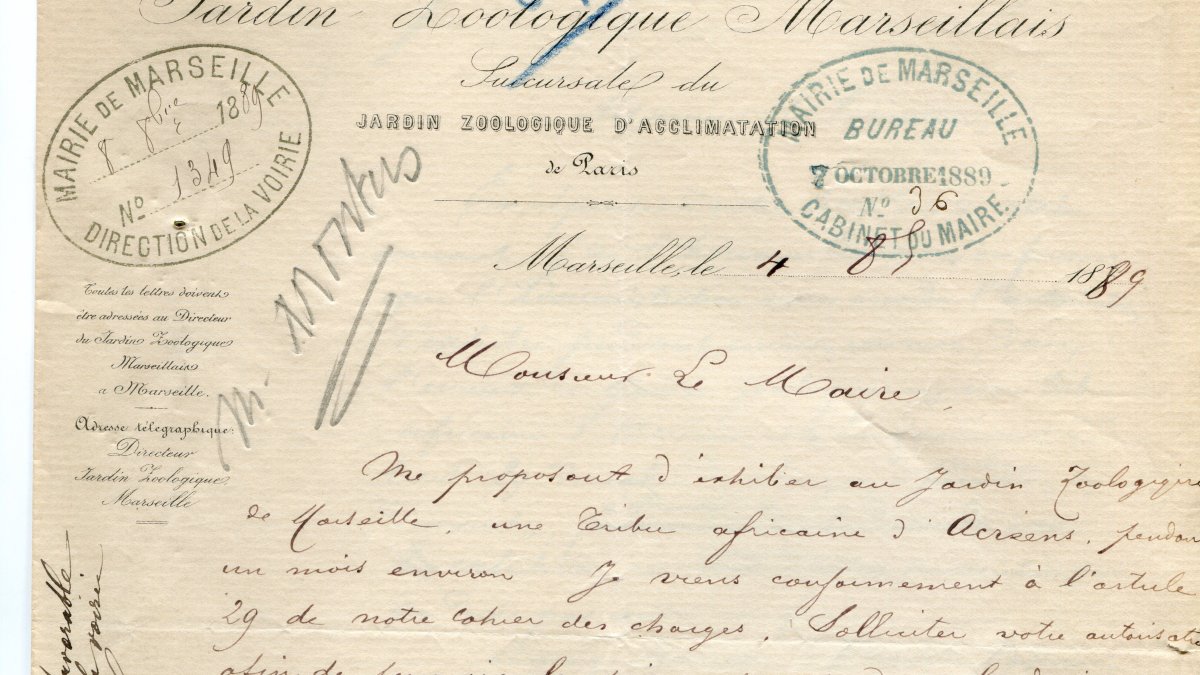 Jardin Zoologique Marseillais
Succursale du
JARDIN ZOOLOGIQUE D'ACCLIMATATION
de Paris
MAIRIE DE MARSEILLE
8 8bre 1889
No 1349
DIRECTION DE LA VOIRIE
MAIRIE DE MARSEILLE
BUREAU
7 OCTOBRE 1889
No 36
CABINET DU MAIRE
Marseille, le 4 1889
Toutes les lettres doivent
être adressées au Directeur
du Jardin Zoologique
Marseillais
a Marseille.
Adresse télégraphique:
Directeur
Jardin Zoologique
Marseille
Monsieur Le Maire
Me proposant d'exhiber au Jardin Zoologique
de Marseille, une Tribu africaine d'Acréens, pendant
un mois environ Je viens conformement à l'article
29 de notre cahier des charges, Solliciter votre autorisation
afin de
favorable
la voirie